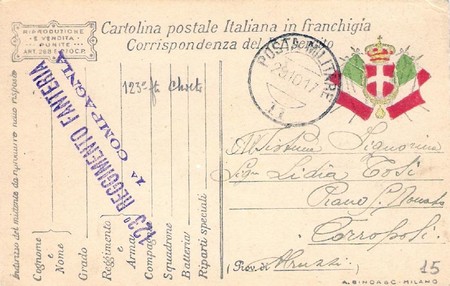 RIPRODUZIONE
E VENDITA
PUNITE
ART. 269 E 270 C.P.
Cartolina postale Italiana in franchigia
Corrispondenza del R. Esercito
POSTA MILITARE
26.10.17
123° REGGIMENTO FANTERIA
7ª COMPAGNIA
123° ft Chieti
Indirizzo del mittente da ripetersi nella risposta
Cognome
e
Nome
Grado
Reggimento
e
Arma
Compagnia
Squadrone
Batteria
Riparti speciali
Signorina
Lidia Tosi
Piano S. Donato
Corropoli
(Prov. di Abruzzi)
15
A. BINDA & C. - MILANO